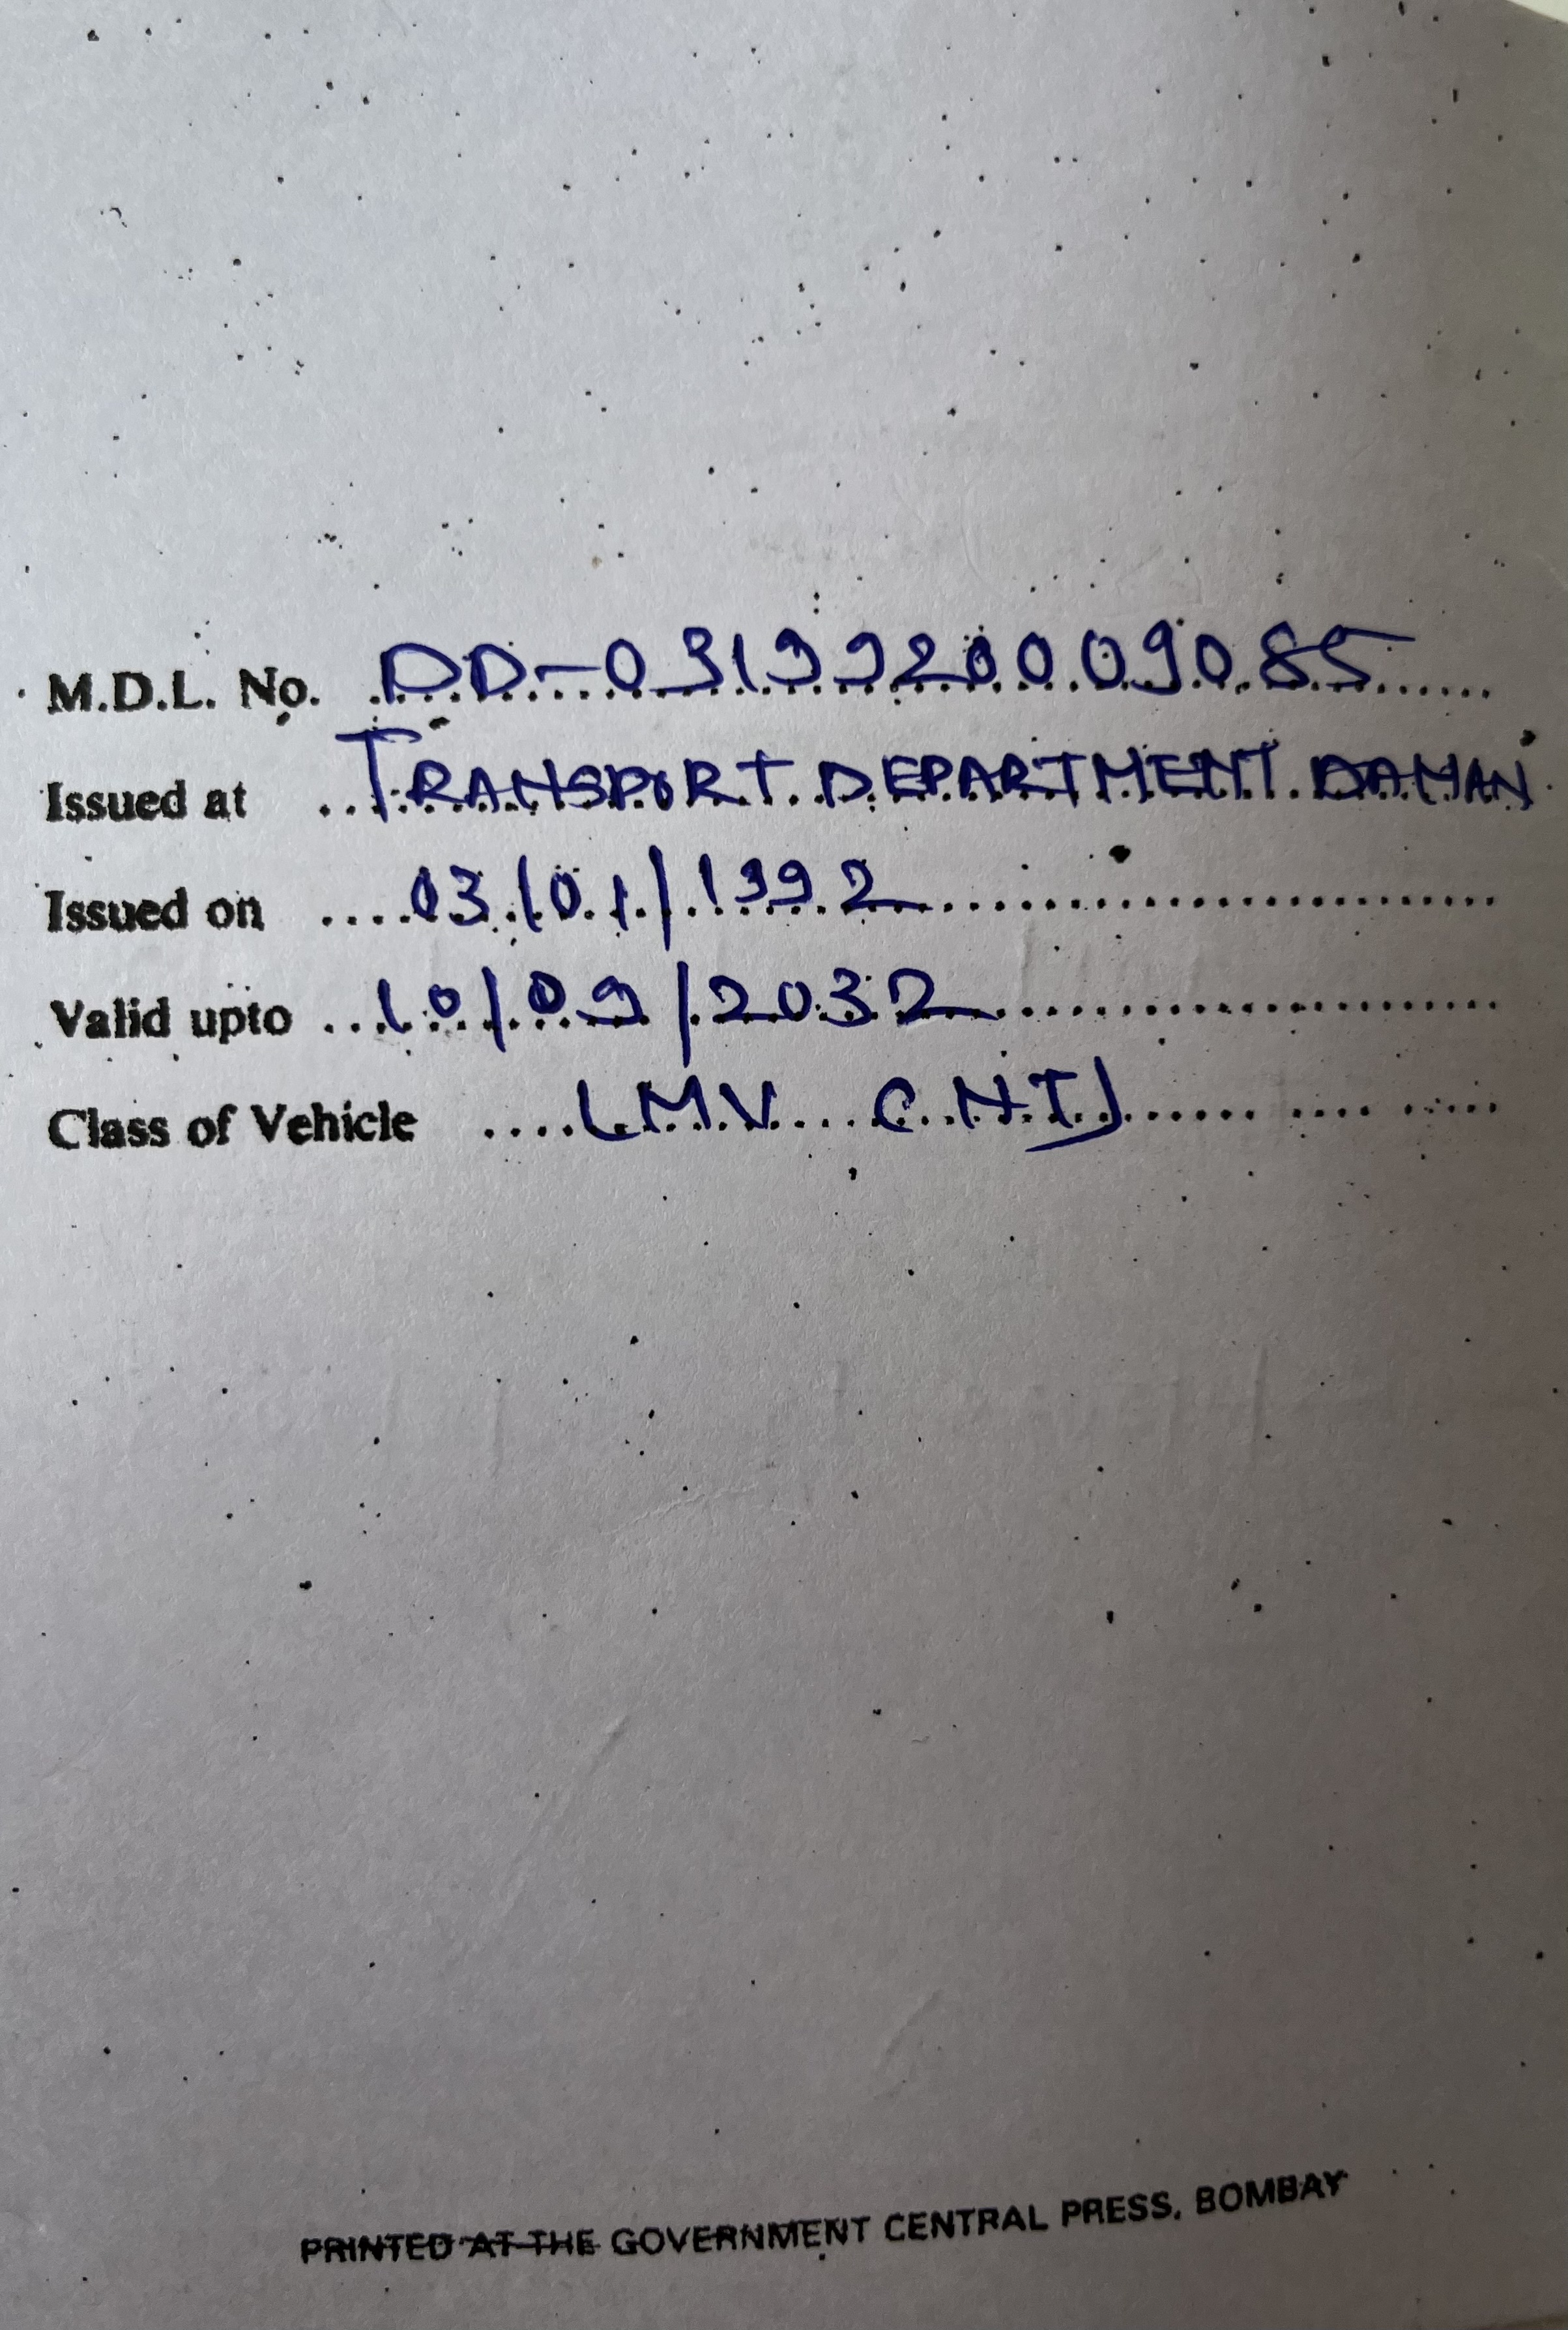 M.D.L. No. DD-0319920009085
Issued at TRANSPORT DEPARTMENT DAMAN
Issued on 03/01/1992
Valid upto 10/09/2032
Class of Vehicle LMV (NT)
PRINTED AT THE GOVERNMENT CENTRAL PRESS, BOMBAY